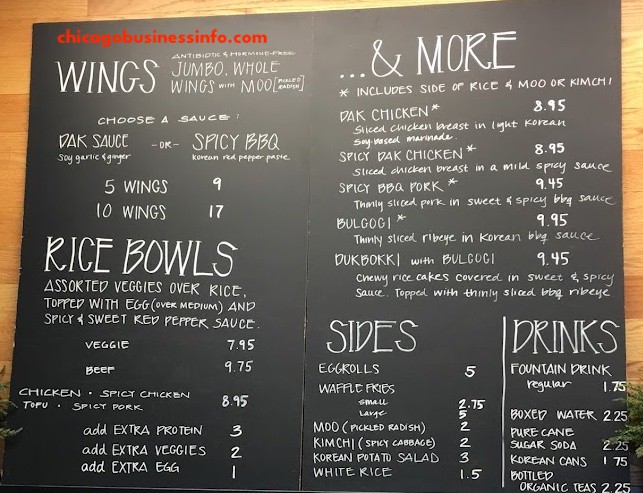 chicagobusinessinfo.com
WINGS
ANTIBIOTIC & HORMONE-FREE
JUMBO, WHOLE
WINGS WITH MOO [PICKLED RADISH]
CHOOSE A SAUCE:
DAK SAUCE -OR- SPICY BBQ
Soy garlic & ginger Korean red pepper paste
5 WINGS 9
10 WINGS 17
RICE BOWLS
ASSORTED VEGGIES OVER RICE,
TOPPED WITH EGG (OVER MEDIUM) AND
SPICY & SWEET RED PEPPER SAUCE.
VEGGIE 7.95
BEEF 9.75
CHICKEN · SPICY CHICKEN
TOFU · SPICY PORK 8.95
add EXTRA PROTEIN 3
add EXTRA VEGGIES 2
add EXTRA EGG 1
...& MORE
* INCLUDES SIDE OF RICE & MOO OR KIMCHI
DAK CHICKEN* 8.95
Sliced chicken breast in light Korean
Soy-based marinade.
SPICY DAK CHICKEN* 8.95
Sliced chicken breast in a mild spicy sauce
SPICY BBQ PORK* 9.45
Thinly sliced pork in sweet & spicy bbq sauce
BULGOGI* 9.95
Thinly sliced ribeye in Korean bbq sauce.
DUKBOKKI with BULGOGI 9.45
Chewy rice cakes covered in sweet & spicy
Sauce. Topped with thinly sliced bbq ribeye
SIDES
EGGROLLS 5
WAFFLE FRIES
small 2.75
large 5
MOO (PICKLED RADISH) 2
KIMCHI (SPICY CABBAGE) 2
KOREAN POTATO SALAD 3
WHITE RICE 1.5
DRINKS
FOUNTAIN DRINK
regular 1.75
BOXED WATER 2.25
PURE CANE
SUGAR SODA 2.25
KOREAN CANS 1.75
BOTTLED
ORGANIC TEAS 2.25